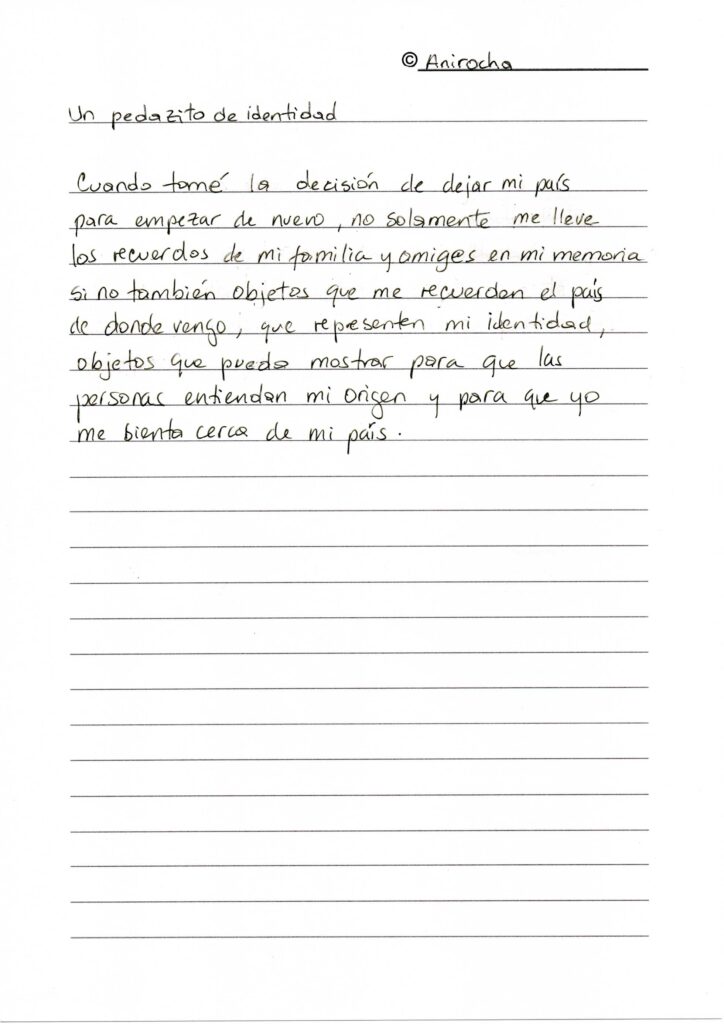 © Anirocha
Un pedazito de identidad
Cuando tomé la decisión de dejar mi país
para empezar de nuevo, no solamente me lleve
los recuerdos de mi familia y amig@s en mi memoria
si no también objetos que me recuerdan el país
de donde vengo, que representen mi identidad,
objetos que pueda mostrar para que las
personas entiendan mi origen y para que yo
me sienta cerca de mi país.